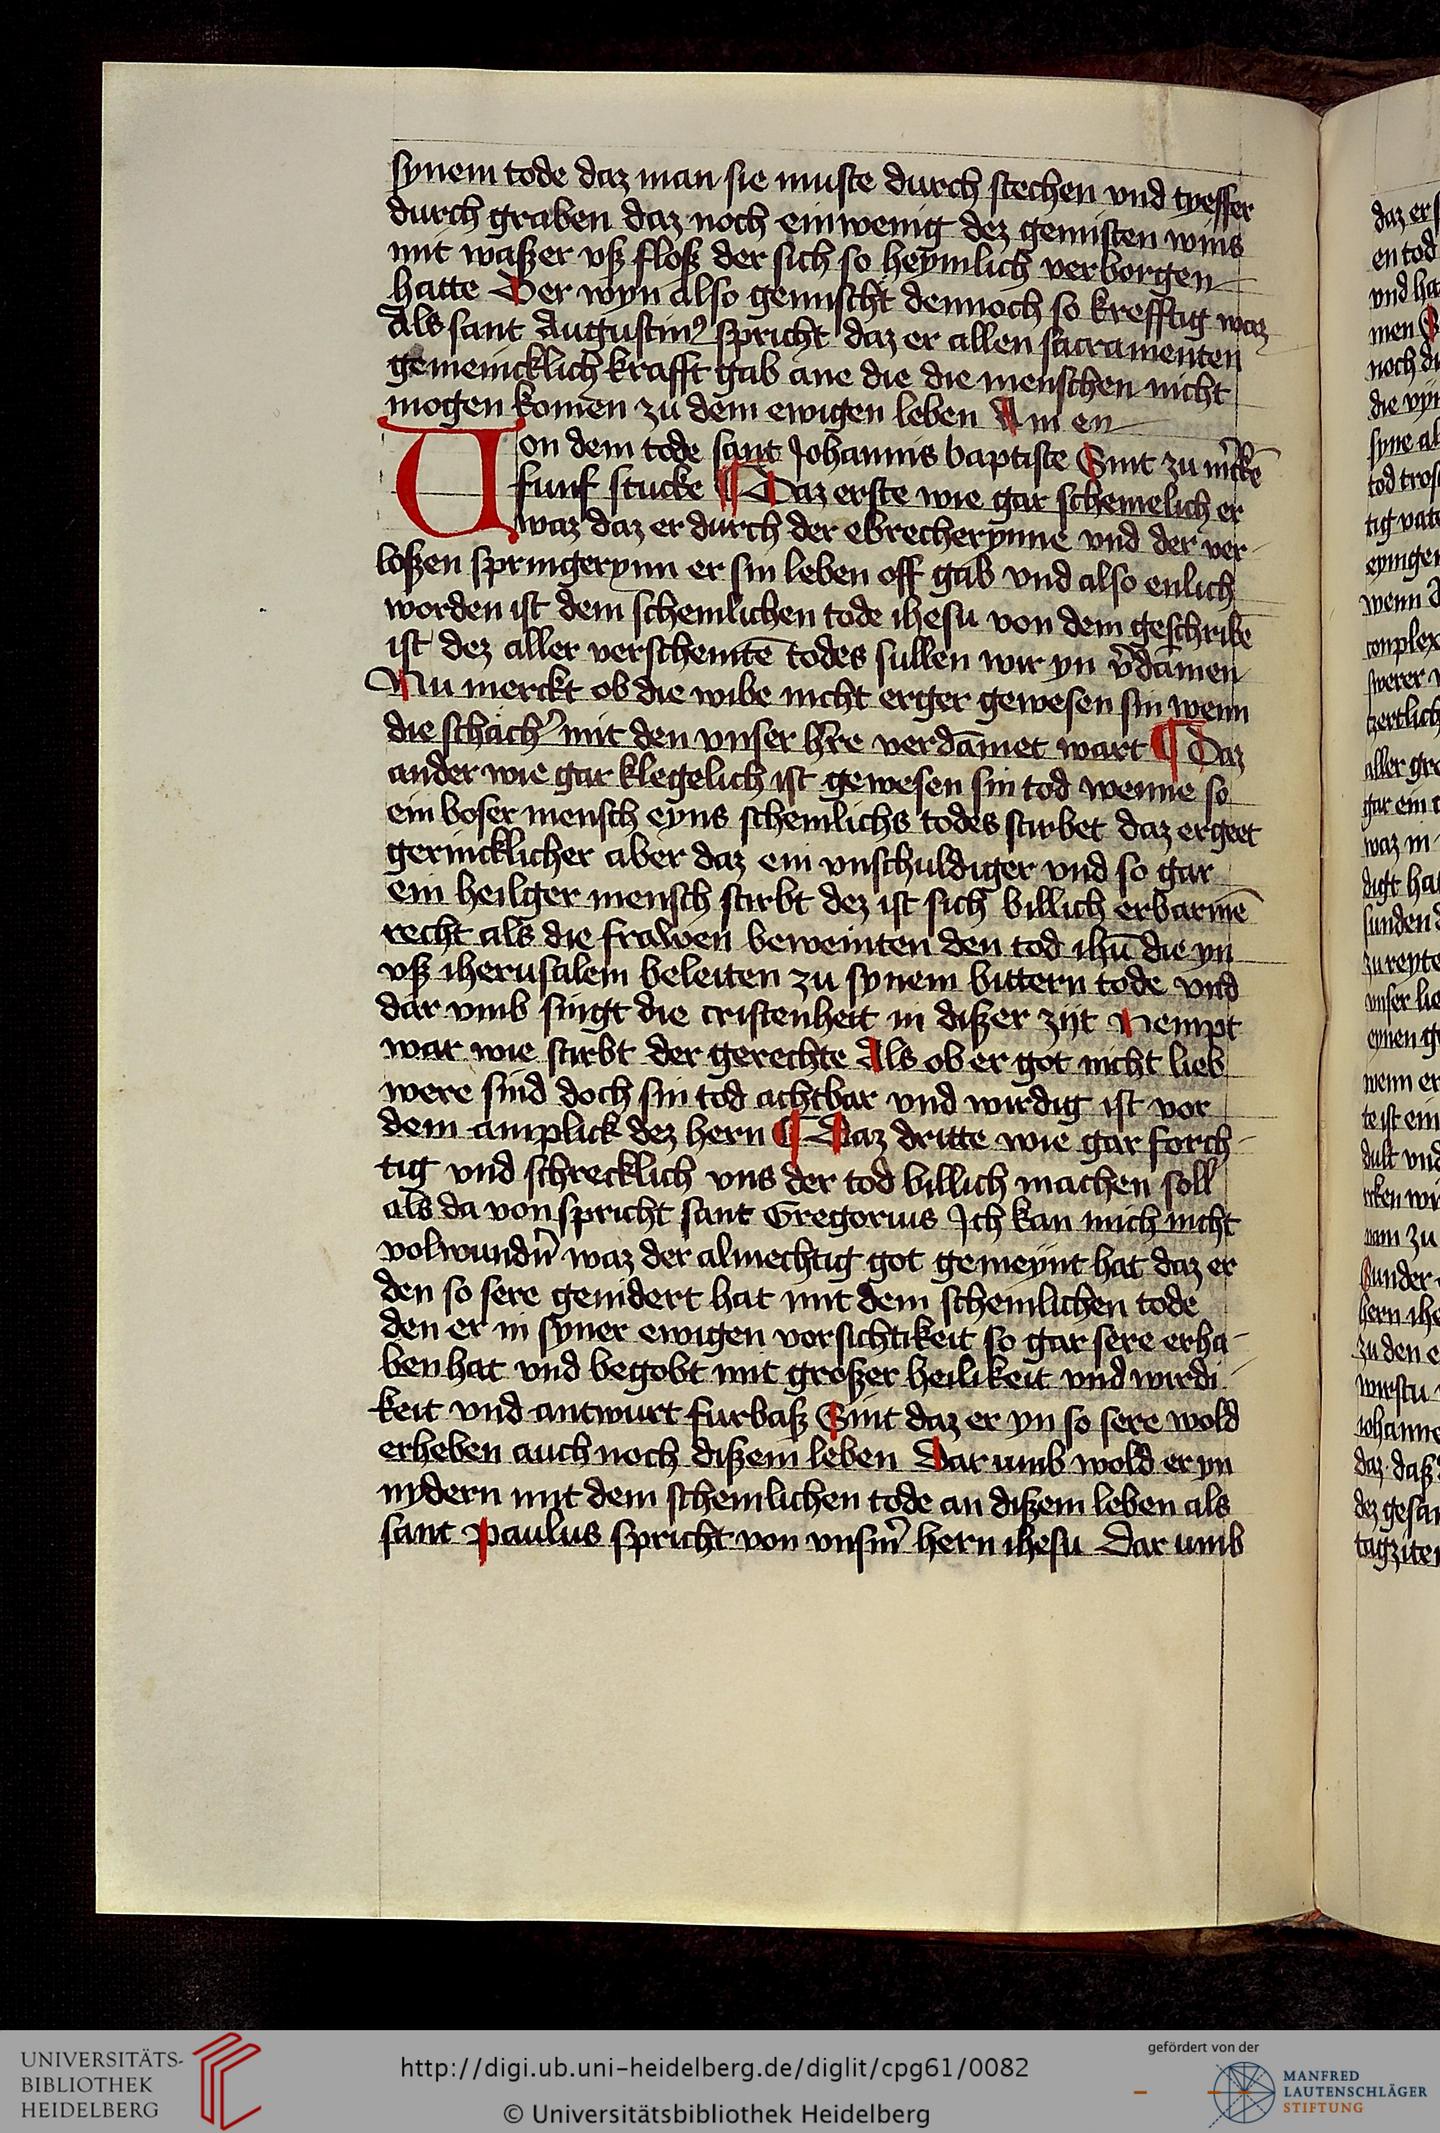 synem tode daz man sie muste durch stechen vnd tyeffer
durch graben daz noch ein wenig dez gemisten wins
mit waßzer vß floß der sich so heymlich verborgen
hatte Der wyn also gemischt dennoch so krefftig waz
Als sant Augustin9 spricht daz er allen sacramenten
gemeincklich krafft gab ane die die menschen nicht
mogen komen zu dem ewigen leben Am en
Uon dem tode sant Johannis baptiste Sint zu m̾ckē
funf stucke ¶ Daz erste wie gar schemelich er
waz daz er durch der ebrecherynne vnd der ver
loßen springerynn er sin leben off gab vnd also enlich
worden ist dem schemlichen tode ihesu von dem geschribē
ist dez aller verschemtē todes sullen wir yn v̾damen
Nu merckt ob die wibe nicht erger gewesen sin wenn
die schach̾ mit den vnser h̾re verdāmet wart ¶ Daz
ander wie gar klegelich ist gewesen sin tod wenne so
ein boser mensch eyns schemlichs todes stirbet daz ergeet
gerincklicher aber daz ein vnschuldiger vnd so gar
ein heilger mensch stirbt dez ist sich billich erbarmē
recht als die frawen beweinten den tod ihū die yn
vß iherusalem beleiten zu synem bittern tode vnd
dar vmb singt die cristenheit in dißer zijt Nempt
war wie stirbt der gerechte Als ob er got nicht lieb
were sind doch sin tod achtbar vnd wirdig ist vor
dem amplick dez hern ¶ Daz dritte wie gar forch
tig vnd schrecklich vns der tod billich machen soll
als da von spricht sant Gregorius Jch kan mich nicht
volwundn̾ waz der almechtig got gemeynt hat daz er
den so sere genidert hat mit dem schemlichen tode
den er in syner ewigen vorsichtikeit so gar sere erha
ben hat vnd begobt mit großer heilikeit vnd wirdi
keit vnd antwurt furbaß Sint daz er yn so sere wold
erheben auch noch dißem leben Dar vmb wold er yn
nydern mit dem schemlichen tode an dißem leben als
sant Paulus spricht von vnsm̾ hern ihesu Dar vmb
daz er
en tod
vnd ha
men
noch di
syne al
wenn
aller gr
gar ein
waz
sunden
zu reyte
vnser lie
eynen
wenn er
te ist ein
dult vnd
nam zu
Sunder
hern ihe
zu den e
wirstu
iohanne
daz daß
dez gesa
tagziten
UNIVERSITÄTS-
BIBLIOTHEK
HEIDELBERG
http://digi.ub.uni-heidelberg.de/diglit/cpg61/0082
© Universitätsbibliothek Heidelberg
gefördert von der
MANFRED
LAUTENSCHLÄGER
STIFTUNG